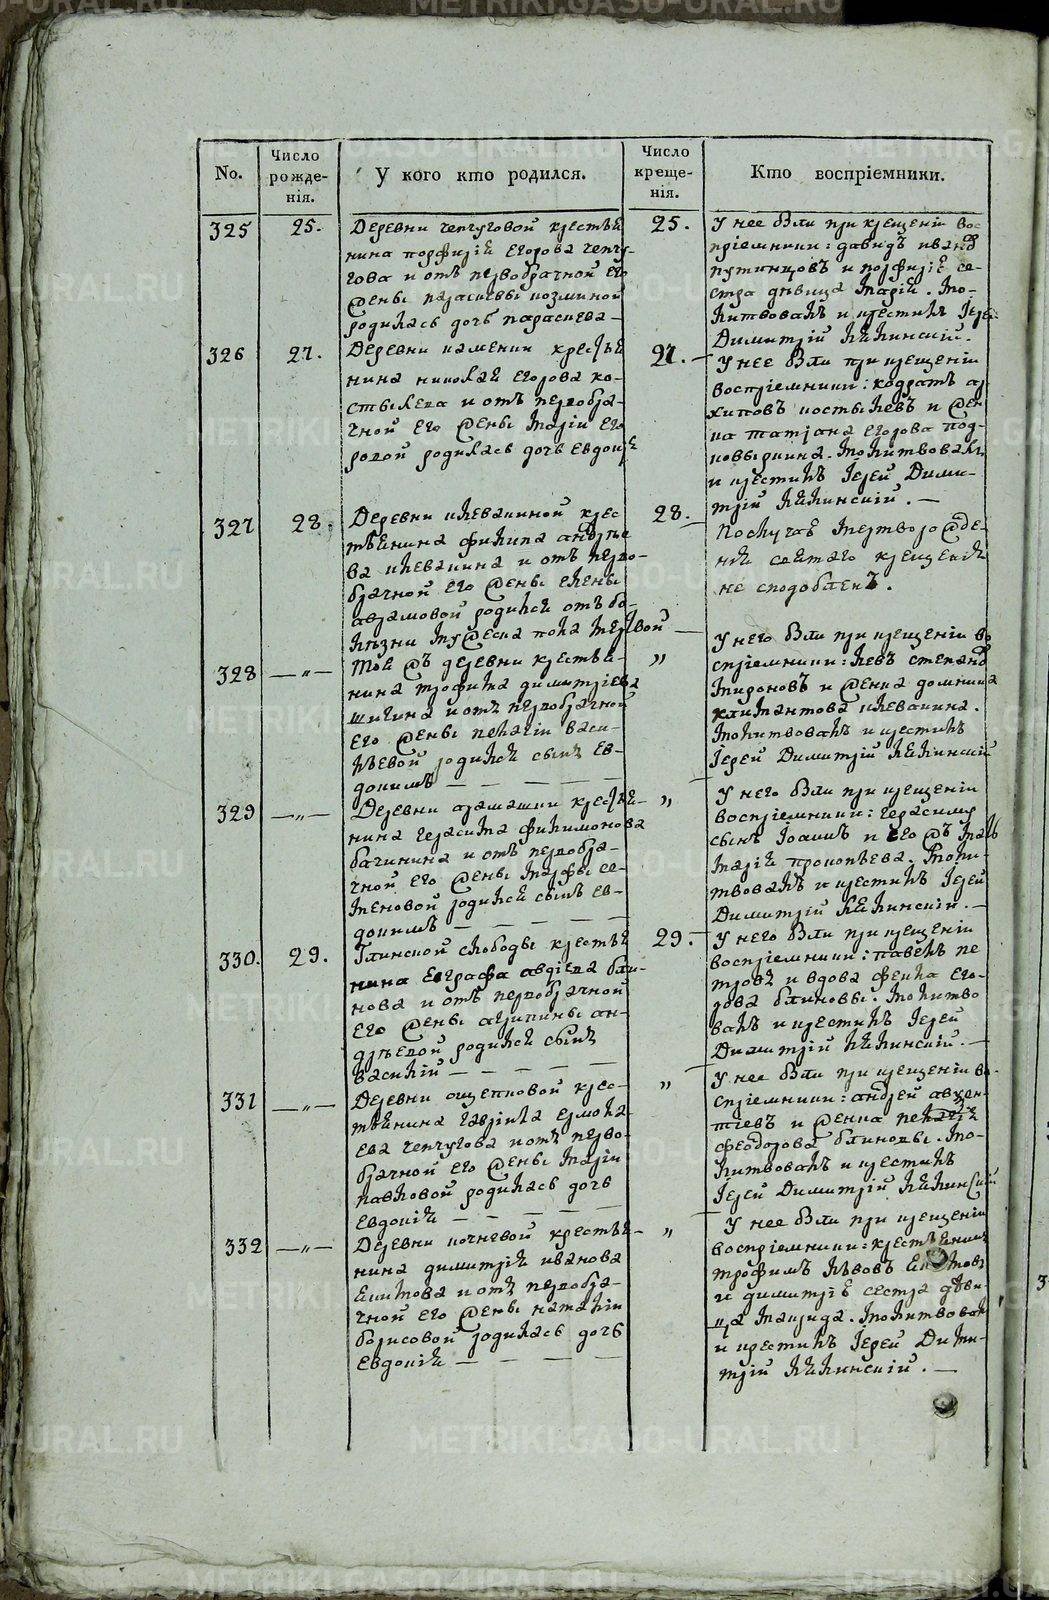 METRIKI.GASO-URAL.RU
No.
Число рожденія.
У кого кто родился.
Число крещенія.
Кто воспріемники.
325
25.
Деревни чепчуговой крестья
нина порфирія Егорова чепчу-
гова и отъ первобрачной его
жены парасковьи козминой
родилась дочь параскева —
25.
У нее были при крещеніи вос
пріемники: давидъ иванов
путинцовъ и порфирія се-
стра дѣвица марія. мо-
литвовалъ и крестилъ Іерей
Димитрій
326
27.
Деревни каменки крестья
нина николая Егорова ко-
стылева и отъ первобра-
чной его жены маріи его
ровой родилась дочь Евдокія
27.
У нее были при крещеніи
воспріемники: кодратъ ар
хиповъ костылевъ и жен
ка татіана егорова под-
ковыркина. молитвовалъ
и крестилъ Іерей Дими-
трій
327
28.
Деревни клевакиной крес
тьянина филипа андрее
ва клевакина и отъ перво-
брачной его жены елены
аврамовой родился отъ бо-
лѣзни мужеска пола мертвой
28.
Послучаю мертворожде-
нія святаго крещенія
не сподобленъ.
328
— " —
той жъ деревни крестья-
нина трофима димитріева
шигина и отъ первобрачной
его жены пелагіи васи-
льевой родился сынъ ев-
докимъ — — — —
"
У него были при крещеніи во
спріемники: левъ степанов
мироновъ и женка домника
климантова клевакина.
молитвовалъ и крестилъ
Іерей Димитрій
329
— " —
Деревни арамашки крестья-
нина герасима филимонова
бачинина и отъ первобра-
чной его жены марфы се-
меновой родился сынъ ев-
докимъ — — — —
"
У него были при крещеніи
воспріемники: герасима
сынъ Іоаннъ и его жъ мать
марія прокопьева. моли-
твовалъ и крестилъ Іерей
Димитрій
330.
29.
Глинской слободы крестья
нина Евграфа авдіева бли-
нова и отъ первобрачной
его жены акилины ан-
дреевой родился сынъ
василій — — — —
29.
У него были при крещеніи
воспріемники: павелъ пе
тровъ и вдова фекла его-
рова блиновы. молитво
валъ и крестилъ Іерей
Димитрій
331
— " —
Деревни ощепковой крес-
тьянина гавріила ермола-
ева чепчугова и отъ перво-
брачной его жены маріи
павловой родилась дочь
евдокія — — — —
"
У нее были при крещеніи во-
спріемники: андрей авксен-
тіевъ и женка пелагія
феодорова блиновы. мо-
литвовалъ и крестилъ
Іерей Димитрій
332
— " —
Деревни кочневой крестья-
нина димитрія иванова
екимова и отъ первобра-
чной его жены наталіи
борисовой родилась дочь
евдокія — — — —
"
У нее были при крещеніи
воспріемники: крестьянинъ
трофимъ львовъ екимовъ
и димитрія сестра дѣви-
ца макрида. молитвовалъ
и крестилъ Іерей Дими-
трій